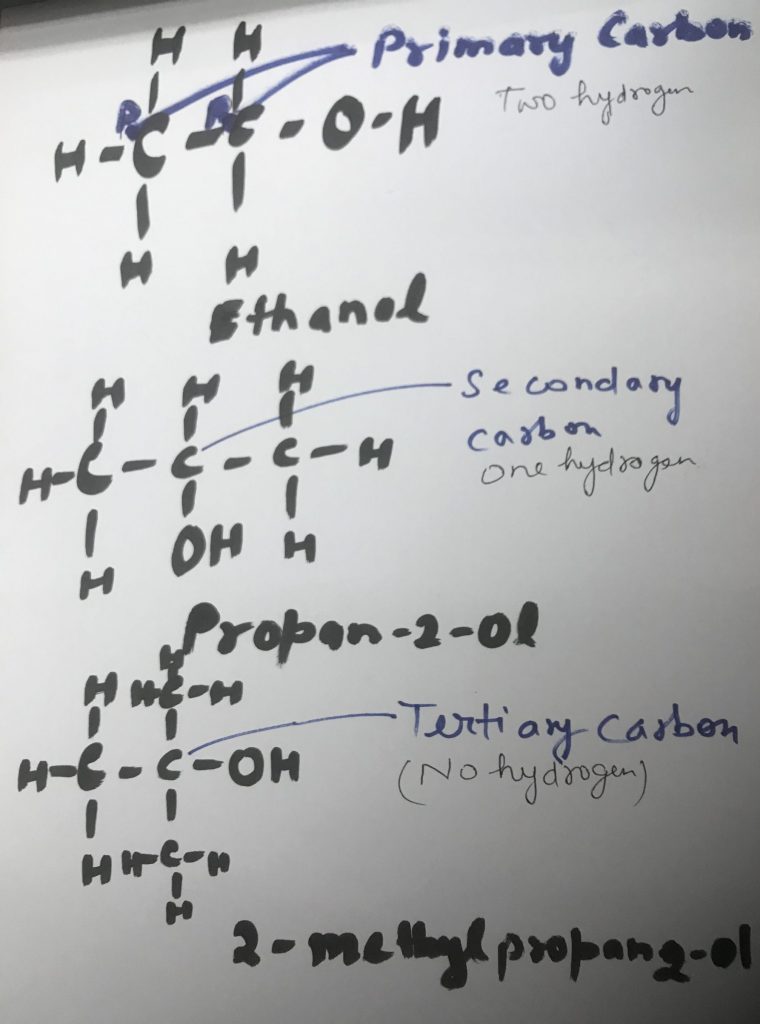 H H
Primary Carbon
Two hydrogen
H-C-C-O-H
H H
Ethanol
H H H
Secondary
carbon
one hydrogen
H-C-C-C-H
H OH H
Propan-2-ol
H
H H-C-H
Tertiary carbon
(No hydrogen)
H-C-C-OH
H H-C-H
H
2-methylpropan2-ol